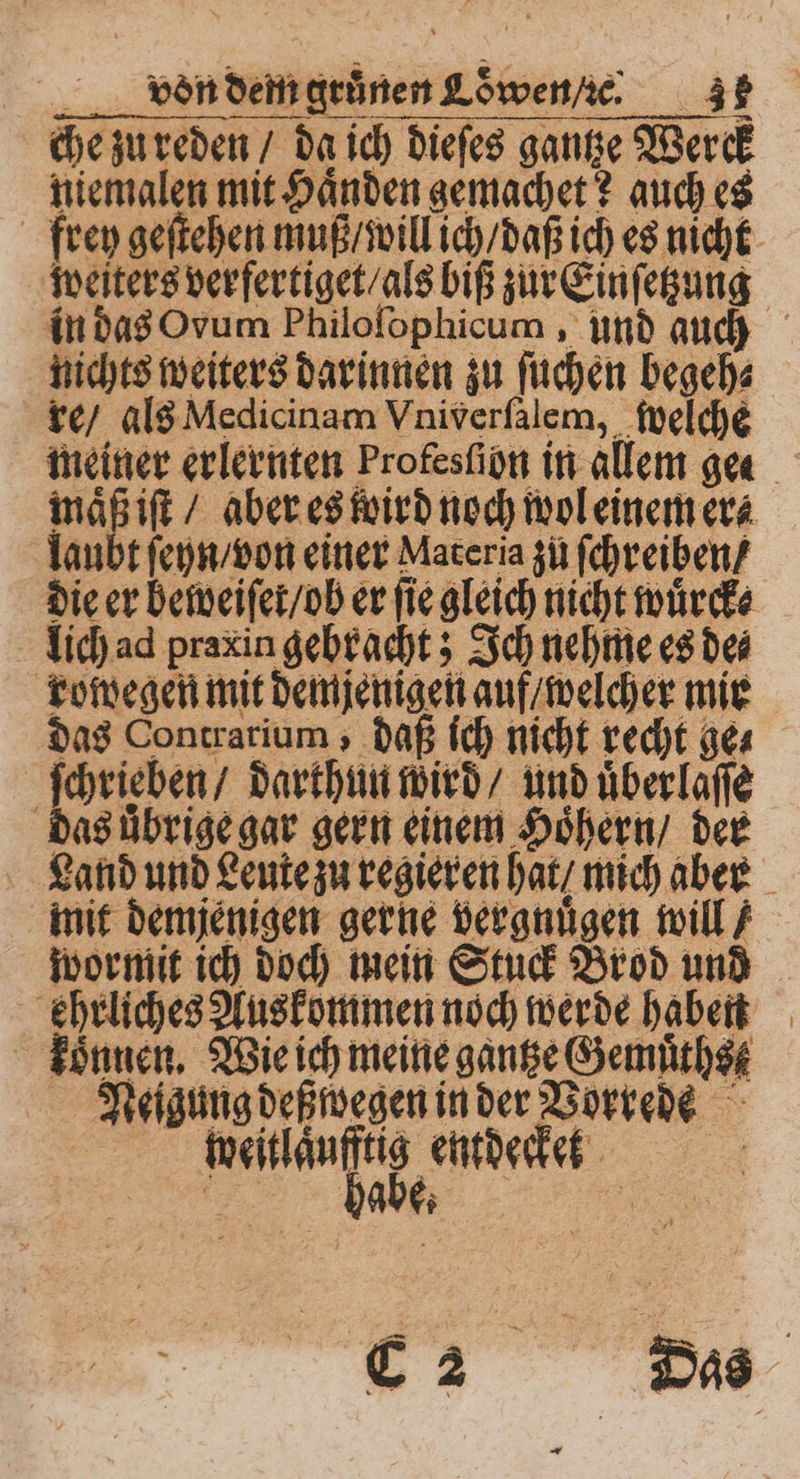 von dem gruͤnen Loͤwen/ꝛc. 35
che zu reden / da ich dieſes gantze Werck
niemalen mit Haͤnden gemachet? auch es
frey geſtehen muß/will ich/daß ich es nicht
weiters verfertiget/als biß zur Einſetzung
in das Ovum Philoſophicum, und auch
nichts weiters darinnen zu ſuchen begeh⸗
re/ als Medicinam Vniverſalem, welche
meiner erlernten Profesſion in allem ge⸗
maͤß iſt / aber es wird noch wol einem er⸗
laubt ſeyn/von einer Materia zu ſchreiben/
die er beweiſet/ob er ſie gleich nicht wuͤrck⸗
lich ad praxin gebracht; Ich nehme es de⸗
rowegen mit demjenigen auf/welcher mir
das Contrarium, daß ich nicht recht ge⸗
ſchrieben/ darthun wird/ und uͤberlaſſe
das uͤbrige gar gern einem Hoͤhern/ der
Land und Leute zu regieren hat/ mich aber
mit demjenigen gerne vergnuͤgen will /
wormit ich doch mein Stuck Brod und
ehrliches Auskommen noch werde haben
koͤnnen. Wie ich meine gantze Gemuͤths⸗
Neigung deßwegen in der Vorrede
weitlaͤufftig entdecket
habe.
C 2 Das